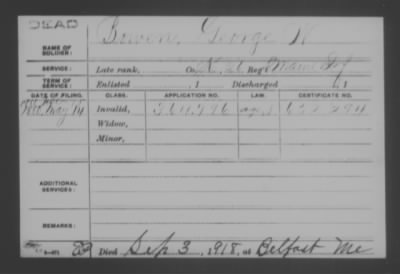 DEAD
NAME OF SOLDIER: Bowen, George W
SERVICE: Late rank, Co. 26 Reg't Maine Inf.
TERM OF SERVICE: Enlisted , 1 Discharged , 1
DATE OF FILING. CLASS. APPLICATION NO. LAW. CERTIFICATE NO.
May 14 Invalid,
Widow,
Minor,
ADDITIONAL SERVICES:
REMARKS:
Died Sep 3, 1918, at Belfast Me